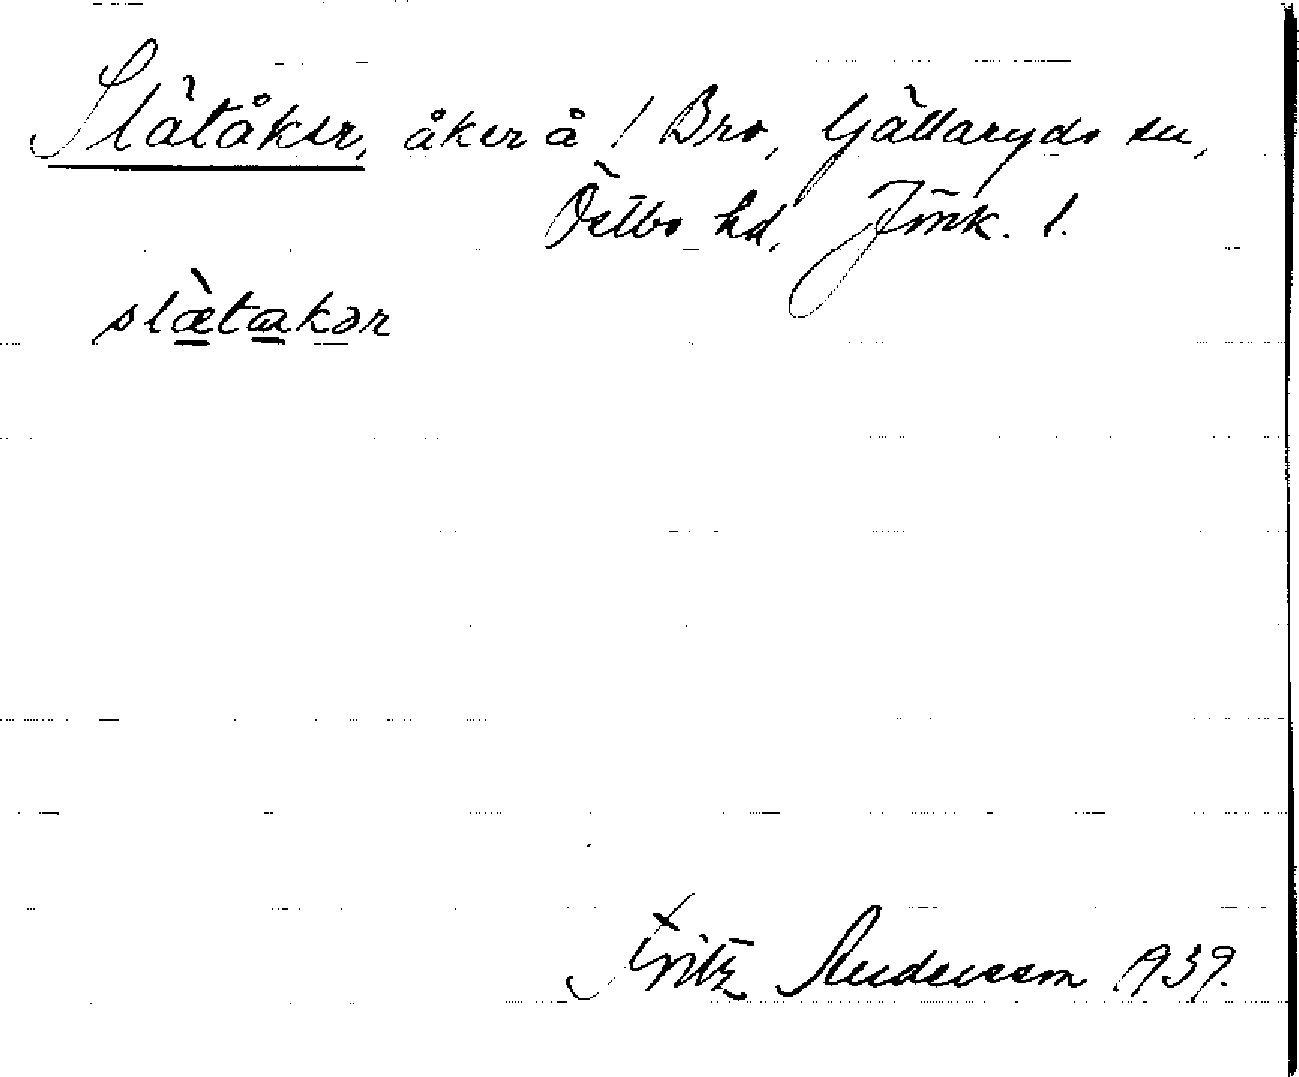 Slätåker, åker å 1 Bro, Gällaryds sn,
Östbo hd, Jönk. l.
slæ̀takər
Fritz Andersson 1939.